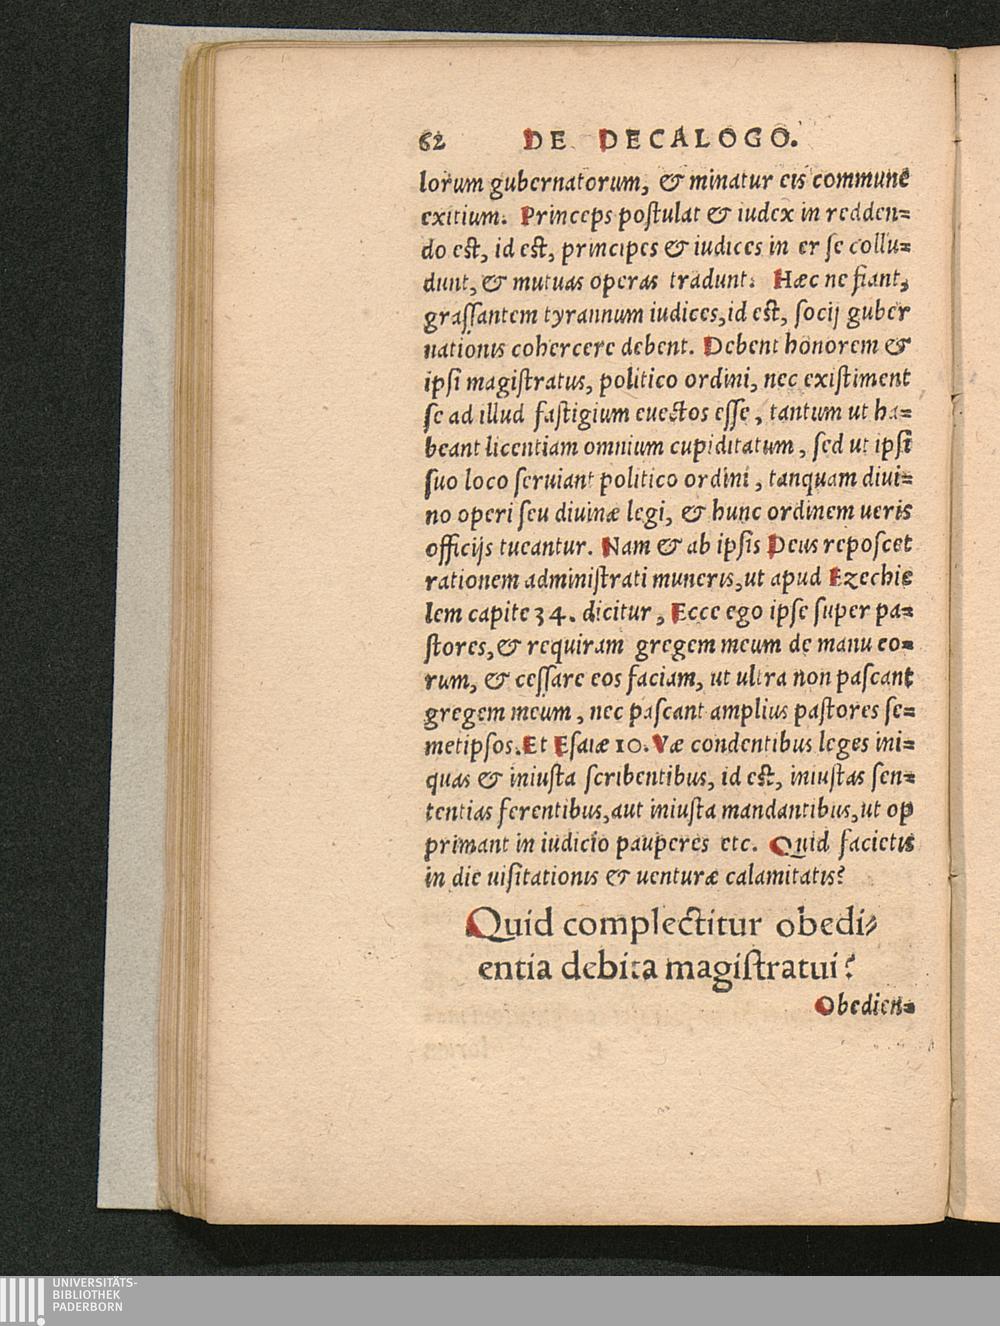 62 DE DECALOGO.
lorum gubernatorum, & minatur eis commune
exitium. Princeps poſtulat & iudex in redden=
do eſt, id eſt, principes & iudices in er ſe collu=
dunt, & mutuas operas tradunt. Hæc ne fiant,
graſſantem tyrannum iudices, id eſt, ſocij guber
nationis cohercere debent. Debent honorem &
ipſi magiſtratus, politico ordini, nec exiſtiment
ſe ad illud faſtigium euectos eſſe, tantum ut ha=
beant licentiam omnium cupiditatum, ſed ut ipſi
ſuo loco ſeruiant politico ordini, tanquam diui=
no operi ſeu diuinæ legi, & hunc ordinem ueris
officijs tueantur. Nam & ab ipſis Deus repoſcet
rationem adminiſtrati muneris, ut apud Ezechie
lem capite 34. dicitur, Ecce ego ipſe ſuper pa=
ſtores, & requiram gregem meum de manu eo=
rum, & ceſſare eos faciam, ut ultra non paſcant
gregem meum, nec paſcant amplius paſtores ſe=
metipſos. Et Eſaiæ 10. Væ condentibus leges ini=
quas & iniuſta ſcribentibus, id eſt, iniuſtas ſen=
tentias ferentibus, aut iniuſta mandantibus, ut op
primant in iudicio pauperes etc. Quid facietis
in die uiſitationis & uenturæ calamitatis?
Quid complectitur obedi=
entia debita magiſtratui?
Obedien=
UNIVERSITÄTS-
BIBLIOTHEK
PADERBORN